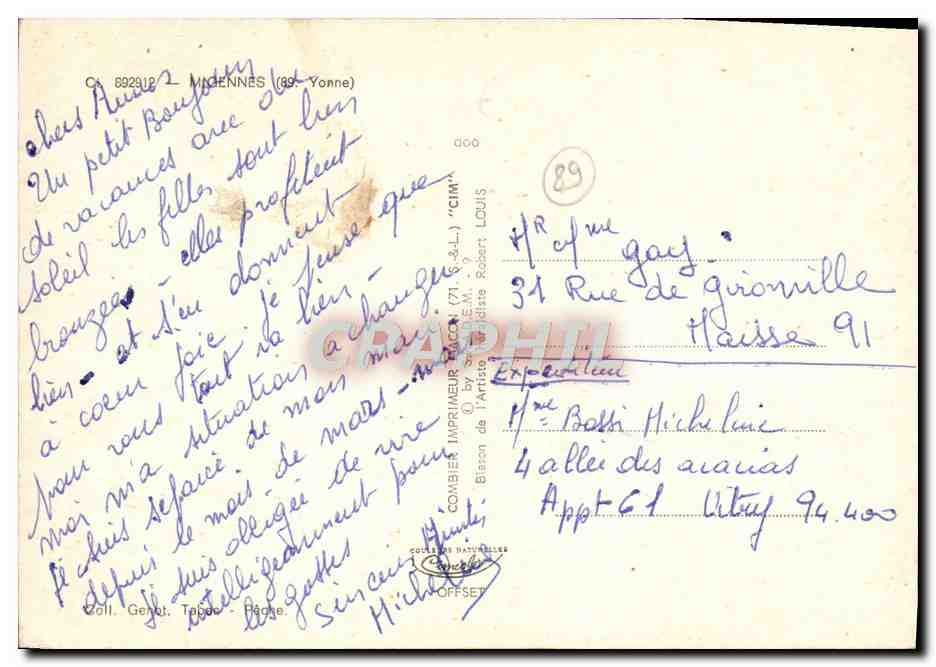 C. 892912 - MIGENNES (89 - Yonne)
chers Amis
Un petit Bonjour
de vacances avec du
soleil les filles sont bien
bronzées - elles profitent
bien - et s'en donnent
à cœur joie. je pense que
pour vous tout va bien -
moi m'a situation a changer
Je suis séparé de mon mari
depuis le mois de mars -
Je suis obligée de vivre
intelligeanment pour
les gosses
Sincères Amitiés
Micheline
Coll. Genot, Tabac - Pêche.
COMBIER IMPRIMEUR MACON (71. S.-&-L.) "CIM"
© by S.P.A.D.E.M. - 9
Blason de l'Artiste Héraldiste Robert LOUIS
000
COULEURS NATURELLES
Combier
OFFSET
89
Mr Mme Gay
31 Rue de Gironville
Maisse 91
Expéditeur
Mme Bossi Micheline
4 allée des acacias
Appt 61 Vitry 94.400
CRAPHTI